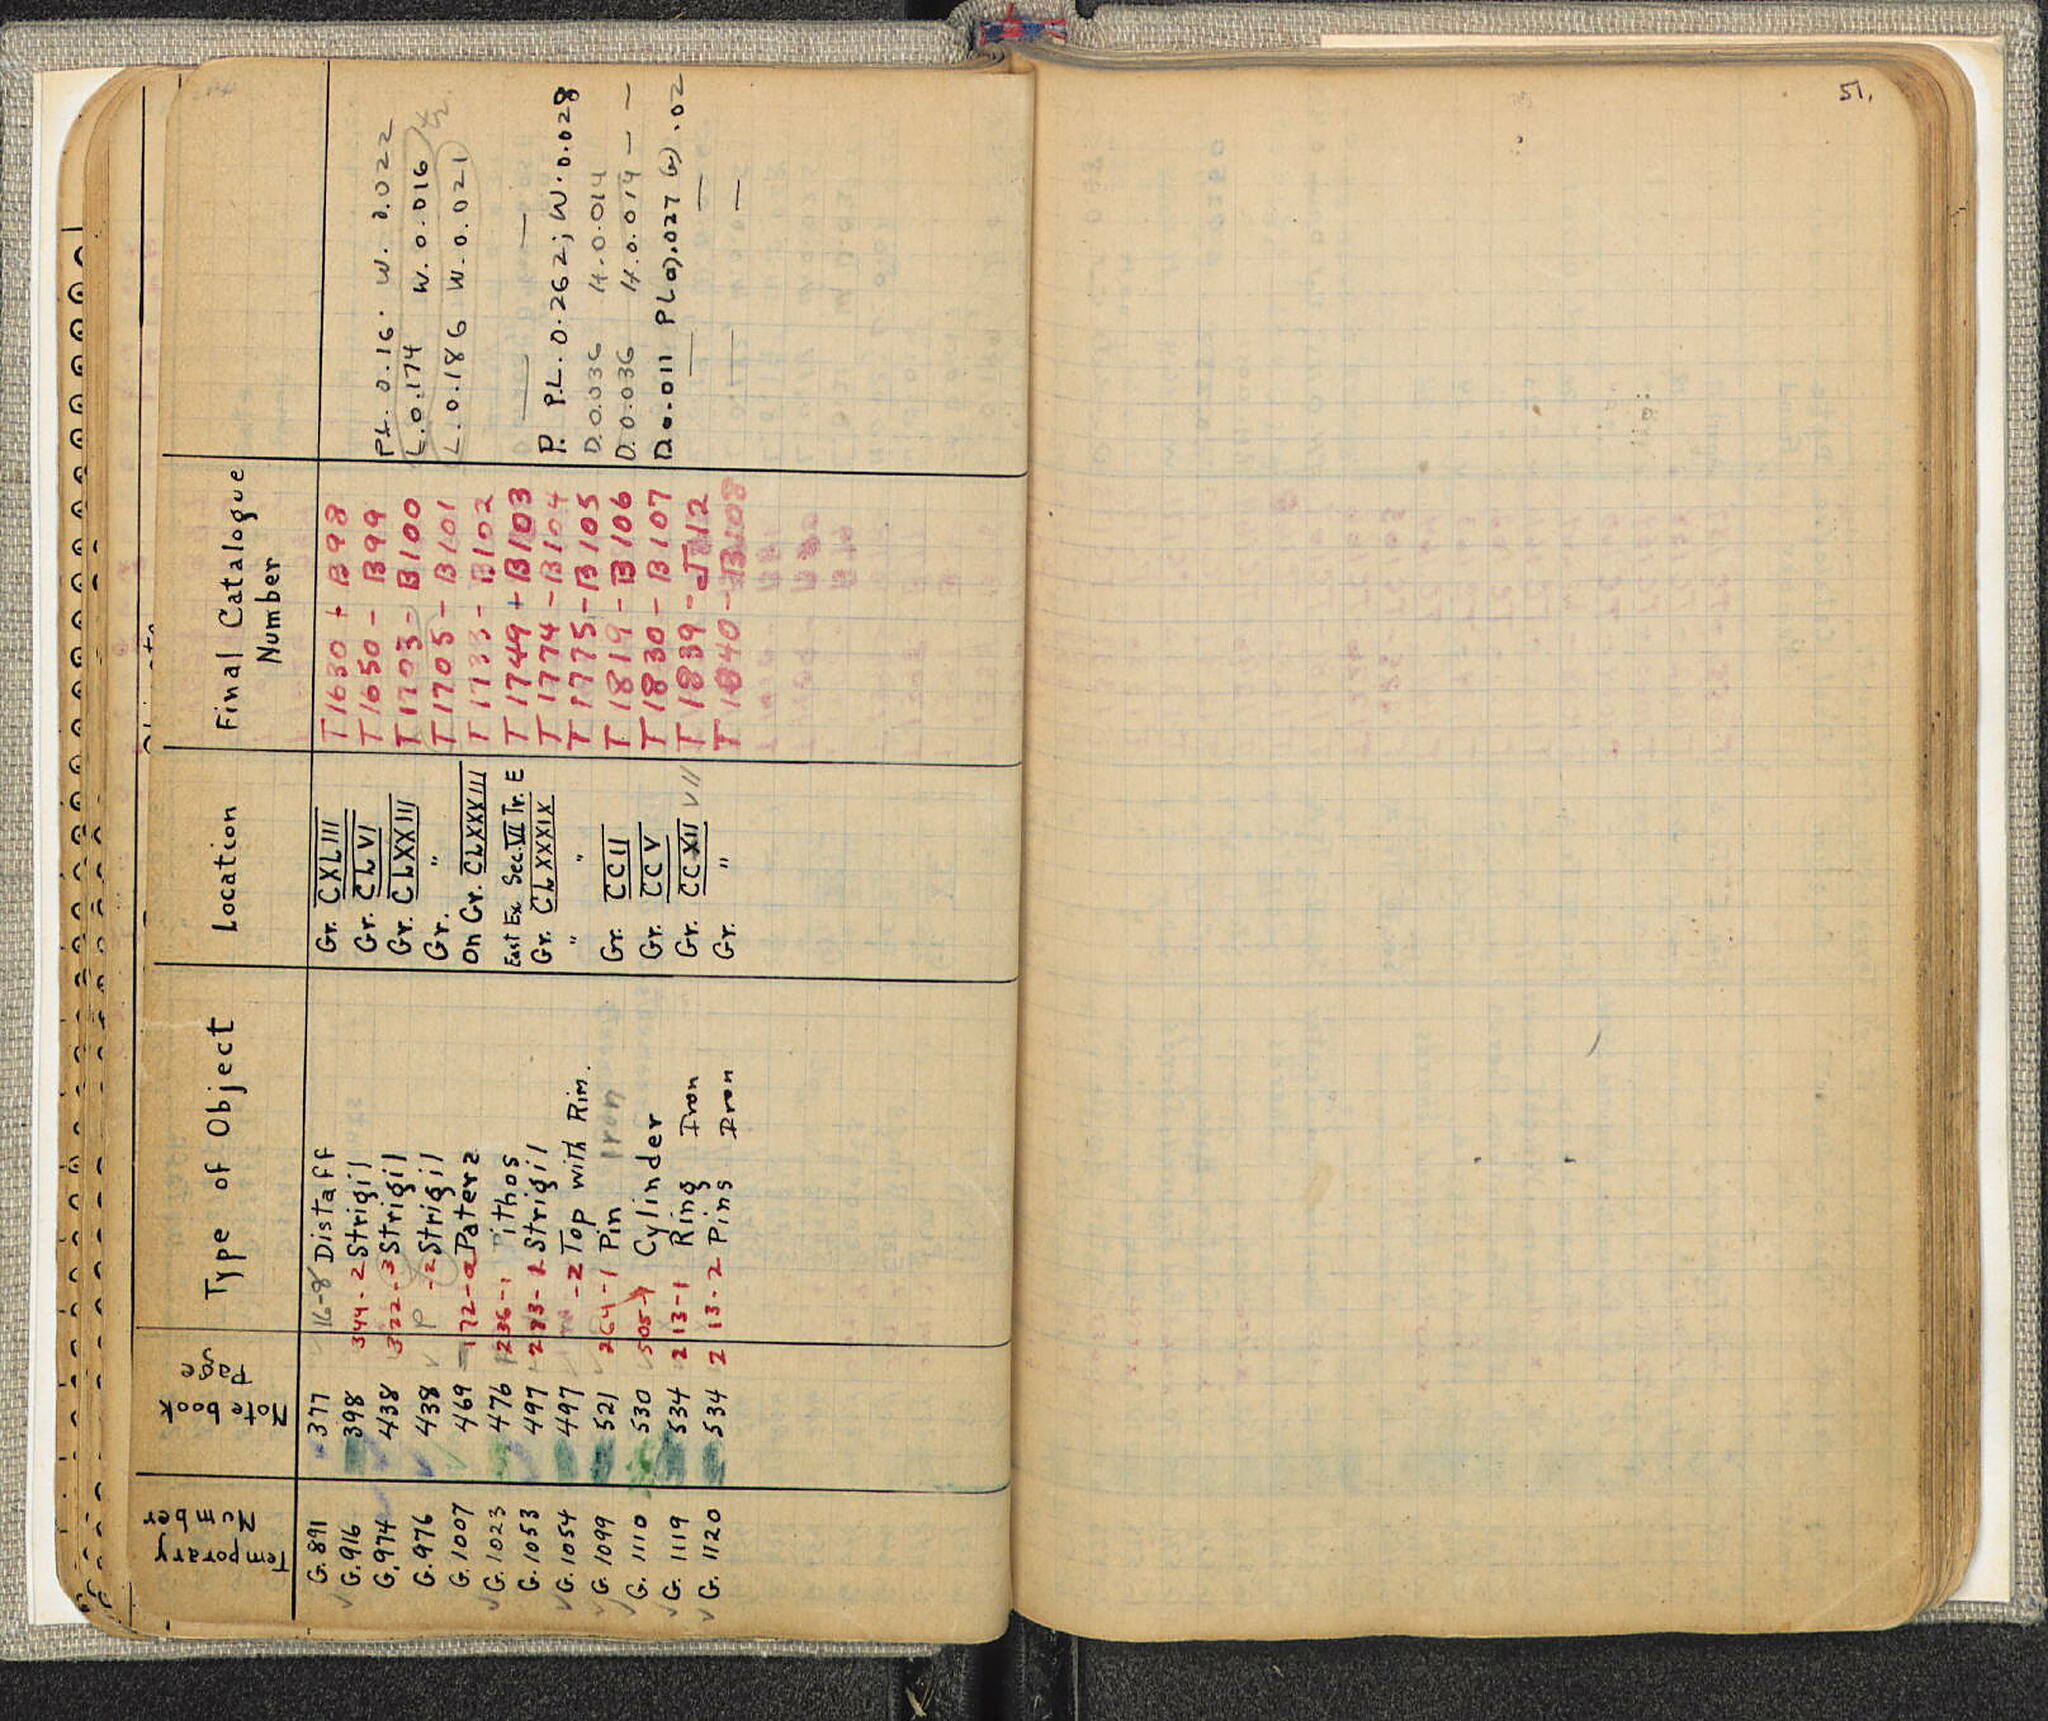 Temporary Number | Note book Page | Type of Object | Location | Final Catalogue Number
G. 891 377 16-8 Distaff Gr. CXLIII T 1630 + B 98
G. 916 398 344-2 Strigil Gr. CLVI T 1650 - B 99 PL. 0.16. W. 0.022
G. 974 438 322-3 Strigil Gr. CLXXIII T 1703 - B 100 L. 0.174 W. 0.016
G. 976 438 P -2 Strigil Gr. " T 1705 - B 101 L. 0.186 W. 0.021
G. 1007 469 172-a Patera On Gr. CLXXXIII T 1733 - B 102 — —
G. 1023 476 236-1 Pithos East Ex. Sec. VI Tr. E T 1749 + B 103 P. P.L. 0.262; W. 0.028
G. 1053 497 283-2 Strigil Gr. CLXXXIX T 1774 - B 104 D. 0.036 H. 0.014
G. 1054 497 -2 Top with Rim. " " T 1775 - B 105 D. 0.036 H. 0.014 — —
G. 1099 521 264-1 Pin Gr. CCII T 1819 - B 106 D. 0.011 PL a) .027 .02
G. 1110 530 505-1 Cylinder Gr. CCV T 1830 - B 107 — —
G. 1119 534 213-1 Ring Iron Gr. CCXII VII T 1839 - J 12 — —
G. 1120 534 213-2 Pins Iron Gr. " T 1840 - B 108
51.